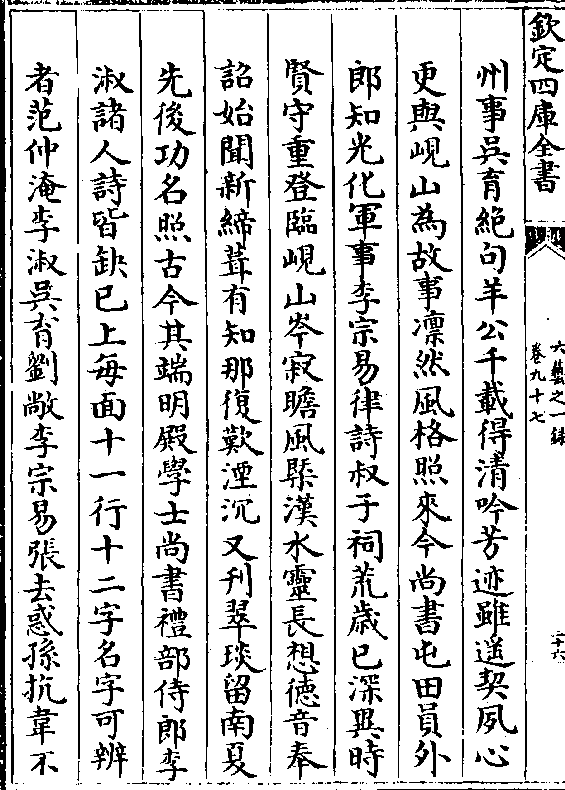 欽定四庫全書
六藝之一錄
卷九十七
二十六
州事吳育絶句羊公千載得清吟芳迹雖遥契夙心
更與峴山為故事凛然風格照來今尚書屯田員外
郎知光化軍事李宗易律詩叔子祠荒歳已深異時
賢守重登臨峴山岑寂瞻風槩漢水靈長想徳音奉
詔始聞新締葺有知那復歎湮沉又刋翠琰留南夏
先後功名照古今其端明殿學士尚書禮部侍郎李
淑諸人詩皆缺已上每面十一行十二字名字可辨
者范仲淹李淑吳育劉敞李宗易張去惑孫抗韋不